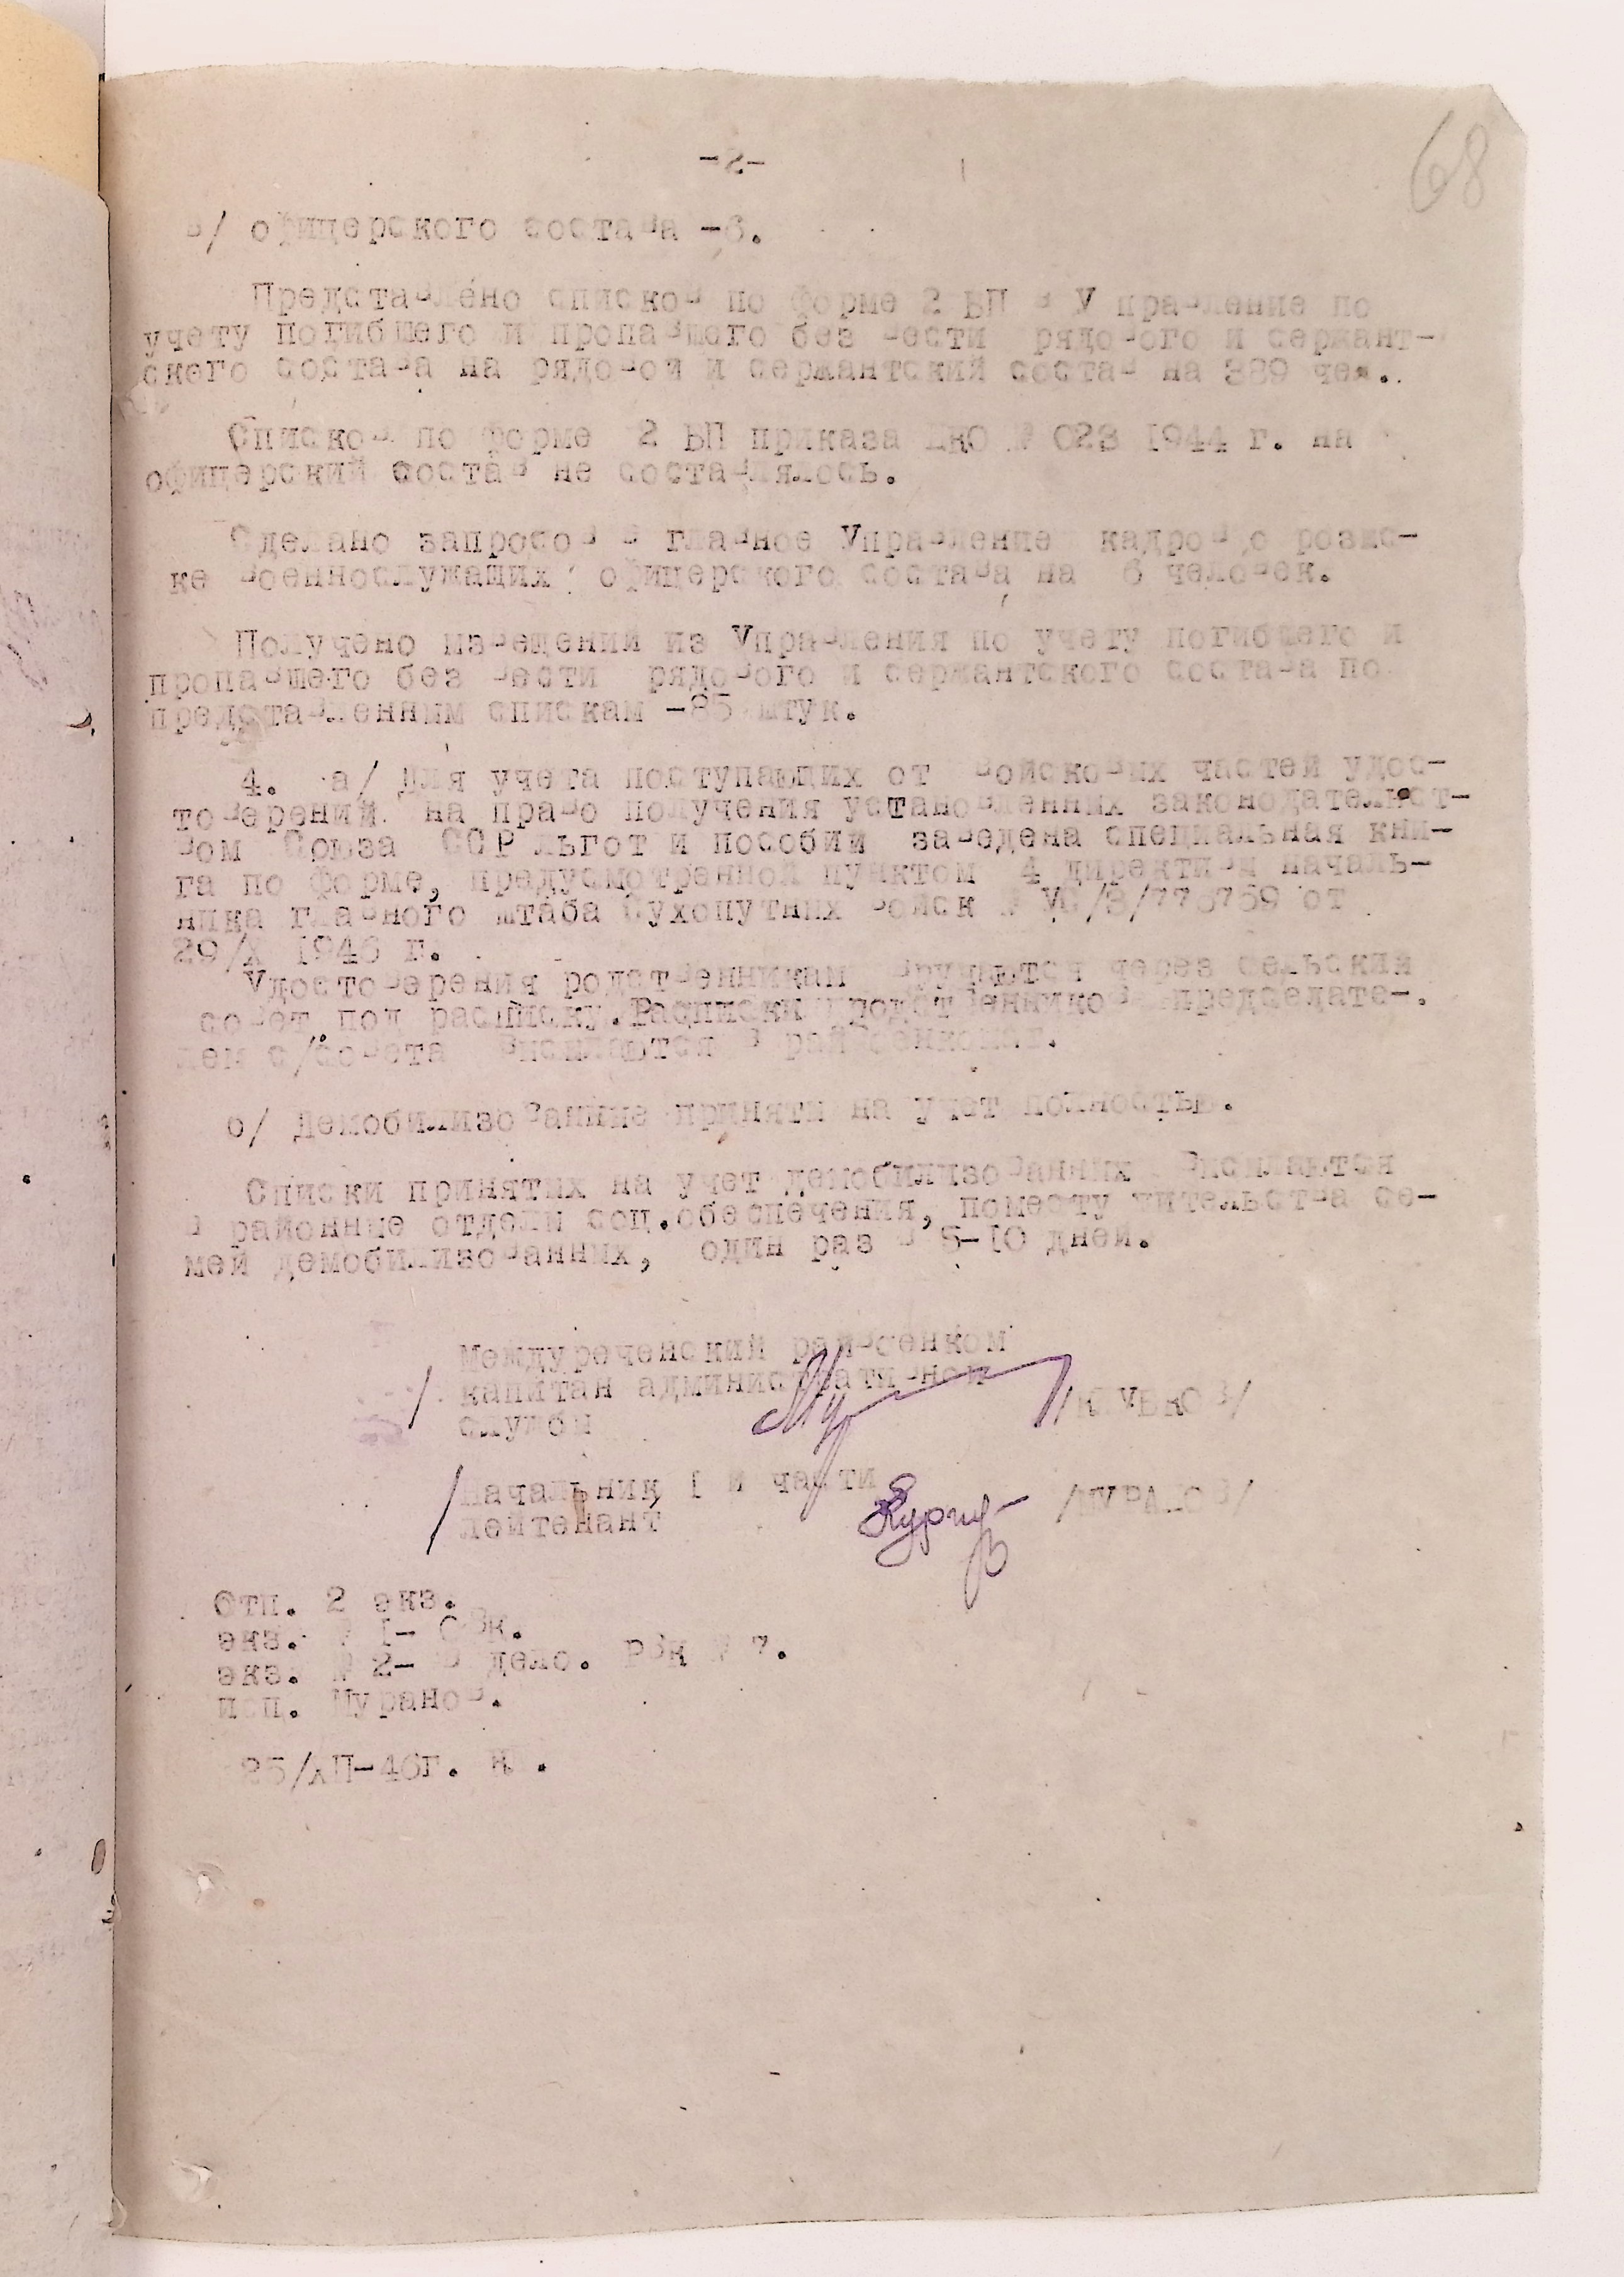 68
-2-
в/ офицерского состава -6.
Представлено списков по форме 2 БП в Управление по
учету погибшего и пропавшего без вести рядового и сержант-
ского состава на рядовой и сержантский состав на 389 чел.
Списков по форме 2 БП приказа НКО № 023 1944 г. на
офицерский состав не составлялось.
Сделано запросов в главное Управление кадров о розыс-
ке военнослужащих офицерского состава на 6 человек.
Получено извещений из Управления по учету погибшего и
пропавшего без вести рядового и сержантского состава по
представленным спискам -85 штук.
4. а/ Для учета поступающих от войсковых частей удос-
товерений на право получения установленных законодательст-
вом Союза ССР льгот и пособий заведена специальная кни-
га по форме, предусмотренной пунктом 4 директивы началь-
ника главного штаба Сухопутных войск №
29/X 1946 г. от
Удостоверения родственникам вручаются через сельский
совет под расписку. Расписки родственников председате-
лем с/совета высылаются в райвоенкомат.
о/ Демобилизованные приняты на учет полностью.
Списки принятых на учет демобилизованных высылаются
в районные отделы соц.обеспечения, поместу жительства се-
мей демобилизованных, один раз в 5-10 дней.
Междуреченский райвоенком
капитан административной
службы
Начальник 1 й части
лейтенант
Отп. 2 экз.
экз. № 1- ОВК.
экз. № 2- в дело. РВК № 7.
исп. Муранов.
25/XII-46г.